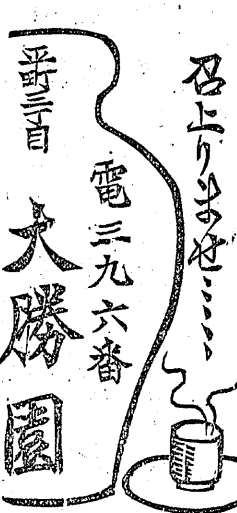 召上りませ……
電三九六番
平町三丁目
大勝園